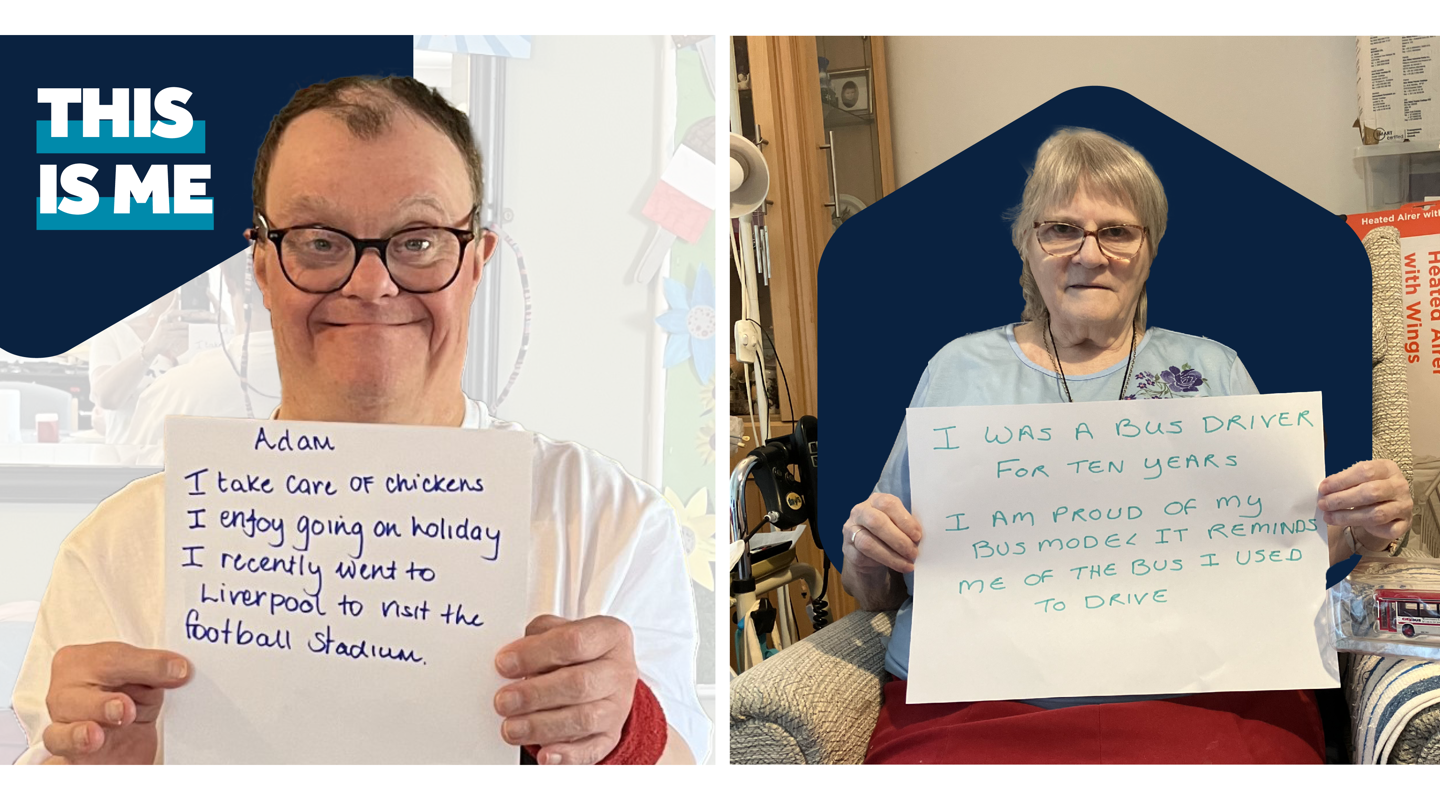 THIS
IS ME
Adam
I take care OF chickens
I enjoy going on holiday
I recently went to
Liverpool to visit the
football stadium.
I WAS A BUS DRIVER
FOR TEN YEARS
I AM PROUD OF MY
BUS MODEL IT REMINDS
ME OF THE BUS I USED
TO DRIVE
Heated Airer with
Heated Airer
with Wings